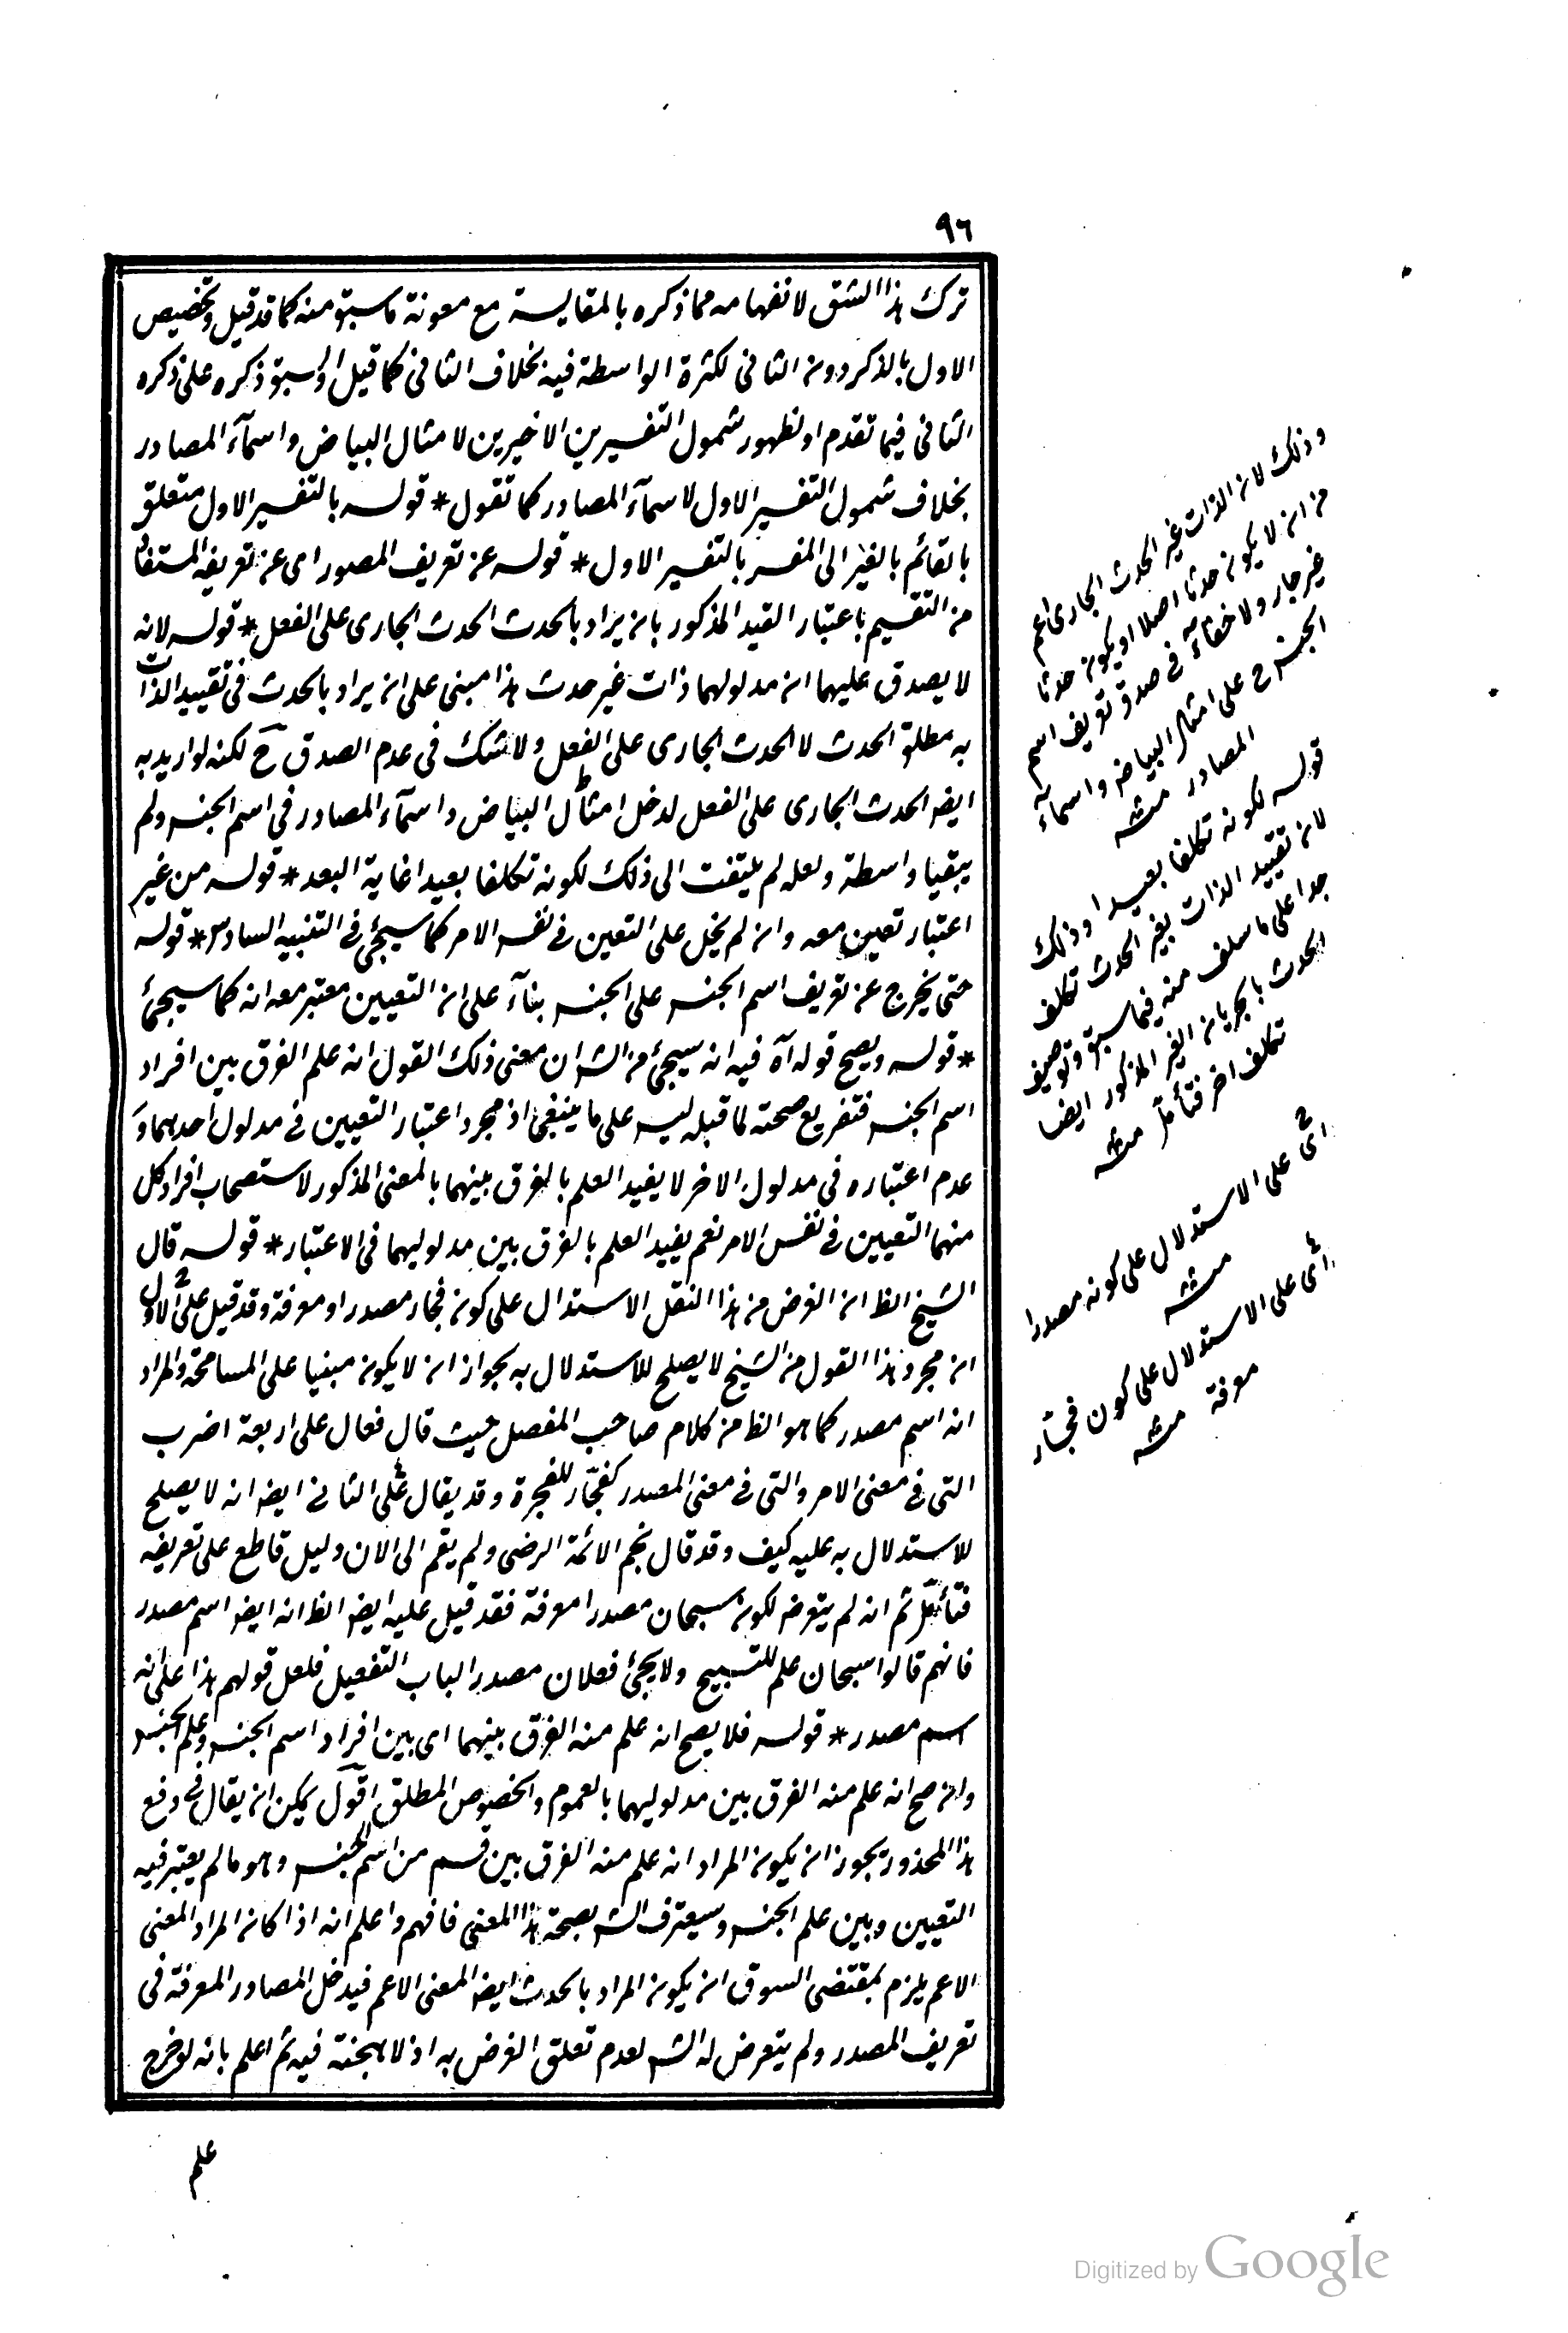 ٩٦
ترك هذا الشق لانفهامه مما ذكره بالمقايسة مع معونة ما سبق منه كما قد قيل وتخصيص
الاول بالذكر دون الثانى لكثرة الواسطة فيه بخلاف الثانى كما قيل او لسبق ذكره على ذكره
الثانى فيما تقدم او لظهور شمول التفسيرين الاخيرين لامثال البياض واسمآء المصادر
بخلاف شمول التفسير الاول لاسمآء المصادر كما تقول * قوله بالتفسير الاول متعلق
بالقائم بالغير الى المفسر بالتفسير الاول * قوله عن تعريف المصدر اى عن تعريفه المستفاد
من التقسيم باعتبار القيد المذكور بان يراد بالحدث الحدث الجارى على الفعل * قوله لانه
لا يصدق عليهما ان مدلولهما ذات غير حدث هذا مبنى على ان يراد بالحدث فى تقييد الذات
به مطلق الحدث لا الحدث الجارى على الفعل ولا شك فى عدم الصدق ح لكنه لو اريد به
ايضا الحدث الجارى على الفعل لدخل امثال البياض واسمآء المصادر فى اسم الجنس ولم
يبقيا واسطة ولعله لم يلتفت الى ذلك لكونه تكلفا بعيدا غاية البعد * قوله من غير
اعتبار تعين معه وان لم يخل على التعين فى نفس الامر كما سيجئ فى التنبيه السادس * قوله
حتى يخرج عن تعريف اسم الجنس على الجنس بنآء على ان التعيين معتبر معه انه كما سيجئ
* قوله ويصح قوله آه فيه انه سيجئ من الشر ان معنى ذلك القول انه علم الفرق بين افراد
اسم الجنس فتفريع صحته لما قبله ليس على ما ينبغى اذ مجرد اعتبار التعيين فى مدلول احدهما و
عدم اعتباره فى مدلول الاخر لا يفيد العلم بالفرق بينهما بالمعنى المذكور لاستصحاب افراد كل
منهما التعيين فى نفس الامر نعم يفيد العلم بالفرق بين مدلوليهما فى الاعتبار * قوله قال
الشيخ الظ ان الغرض من هذا النقل الاستدلال على كون فجار مصدرا ومعرفة وقد قيل على الاول
ان مجرد هذا القول من الشيخ لا يصلح للاستدلال به بجواز ان لا يكون مبنيا على المسامحة والمراد
انه اسم مصدر كما هو الظ من كلام صاحب المفصل حيث قال فعال على اربعة اضرب
التى فى معنى الامر والتى فى معنى المصدر كفجار للفجرة وقد يقال على الثانى ايضا انه لا يصلح
للاستدلال به عليه كيف وقد قال نجم الائمة الرضى ولم يقم الى الان دليل قاطع على تعريفه
فتأمل ثم انه لم يتعرض لكون سبحان مصدرا معرفة فقد قيل عليه ايضا الظ انه ايضا اسم مصدر
فانهم قالوا سبحان علم للتسبيح ولا يجئ فعلان مصدرا لباب التفعيل فلعل قولهم هذا على انه
اسم مصدر * قوله فلا يصح انه علم منه الفرق بينهما اى بين افراد اسم الجنس وعلم الجنس
وان صح انه علم منه الفرق بين مدلوليهما بالعموم والخصوص المطلق اقول يمكن ان يقال فى دفع
هذا المحذور يجوز ان يكون المراد انه علم منه الفرق بين قسم من اسم الجنس وهو ما لم يعتبر فيه
التعيين وبين علم الجنس وسيعترف الشر بصحة هذا المعنى فافهم واعلم انه اذا كان المراد المعنى
الاعم يلزم بمقتضى السوق ان يكون المراد بالحدث ايضا المعنى الاعم فيدخل المصادر المعرفة فى
تعريف المصدر ولم يتعرض له الشر لعدم تعلق الغرض به اذ لا هجنة فيه ثم اعلم بانه لو خرج
علم
وذلك لان الذات غير الحدث الجارى اعم
من ان لا يكون حدثا اصلا او يكون حدثا
غير جار ولا خفاء فى صدق تعريف اسم
الجنس ح على امثال البياض واسماء
المصادر منه
قوله لكونه تكلفا بعيدا وذلك
لان تقييد الذات بغير الحدث تكلف
جدا على ما سلف منه فيما سبق وتوصيف
الحدث بالجريان الغير المذكور ايضا
تكلف اخر فتأمل منه
اى على الاستدلال على كونه مصدرا
منه
اى على الاستدلال على كون فجار
معرفة منه
Digitized by Google